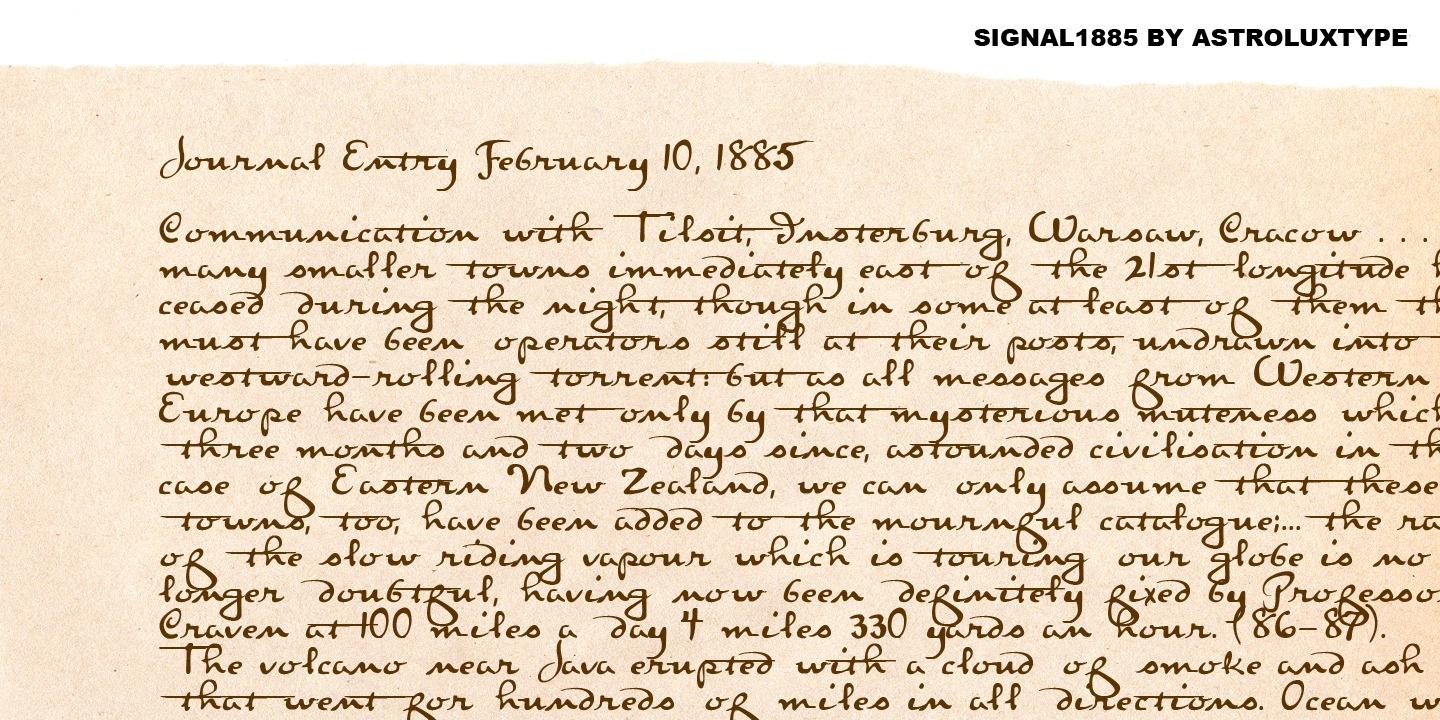 SIGNAL1885 BY ASTROLUXTYPE
Journal Entry February 10, 1885
Communication with Tilsit, Insterburg, Warsaw, Cracow . . .
many smaller towns immediately east of the 21st longitude
ceased during the night, though in some at least of them
must have been operators still at their posts, undrawn into
westward-rolling torrent: but as all messages from Western
Europe have been met only by that mysterious muteness which
three months and two days since, astounded civilisation in
case of Eastern New Zealand, we can only assume that these
towns, too, have been added to the mournful catalogue;... the
of the slow riding vapour which is touring our globe is no
longer doubtful, having now been definitely fixed by Professor
Craven at 100 miles a day 4 miles 330 yards an hour. (86-87).
The volcano near Java erupted with a cloud of smoke and ash
that went for hundreds of miles in all directions. Ocean